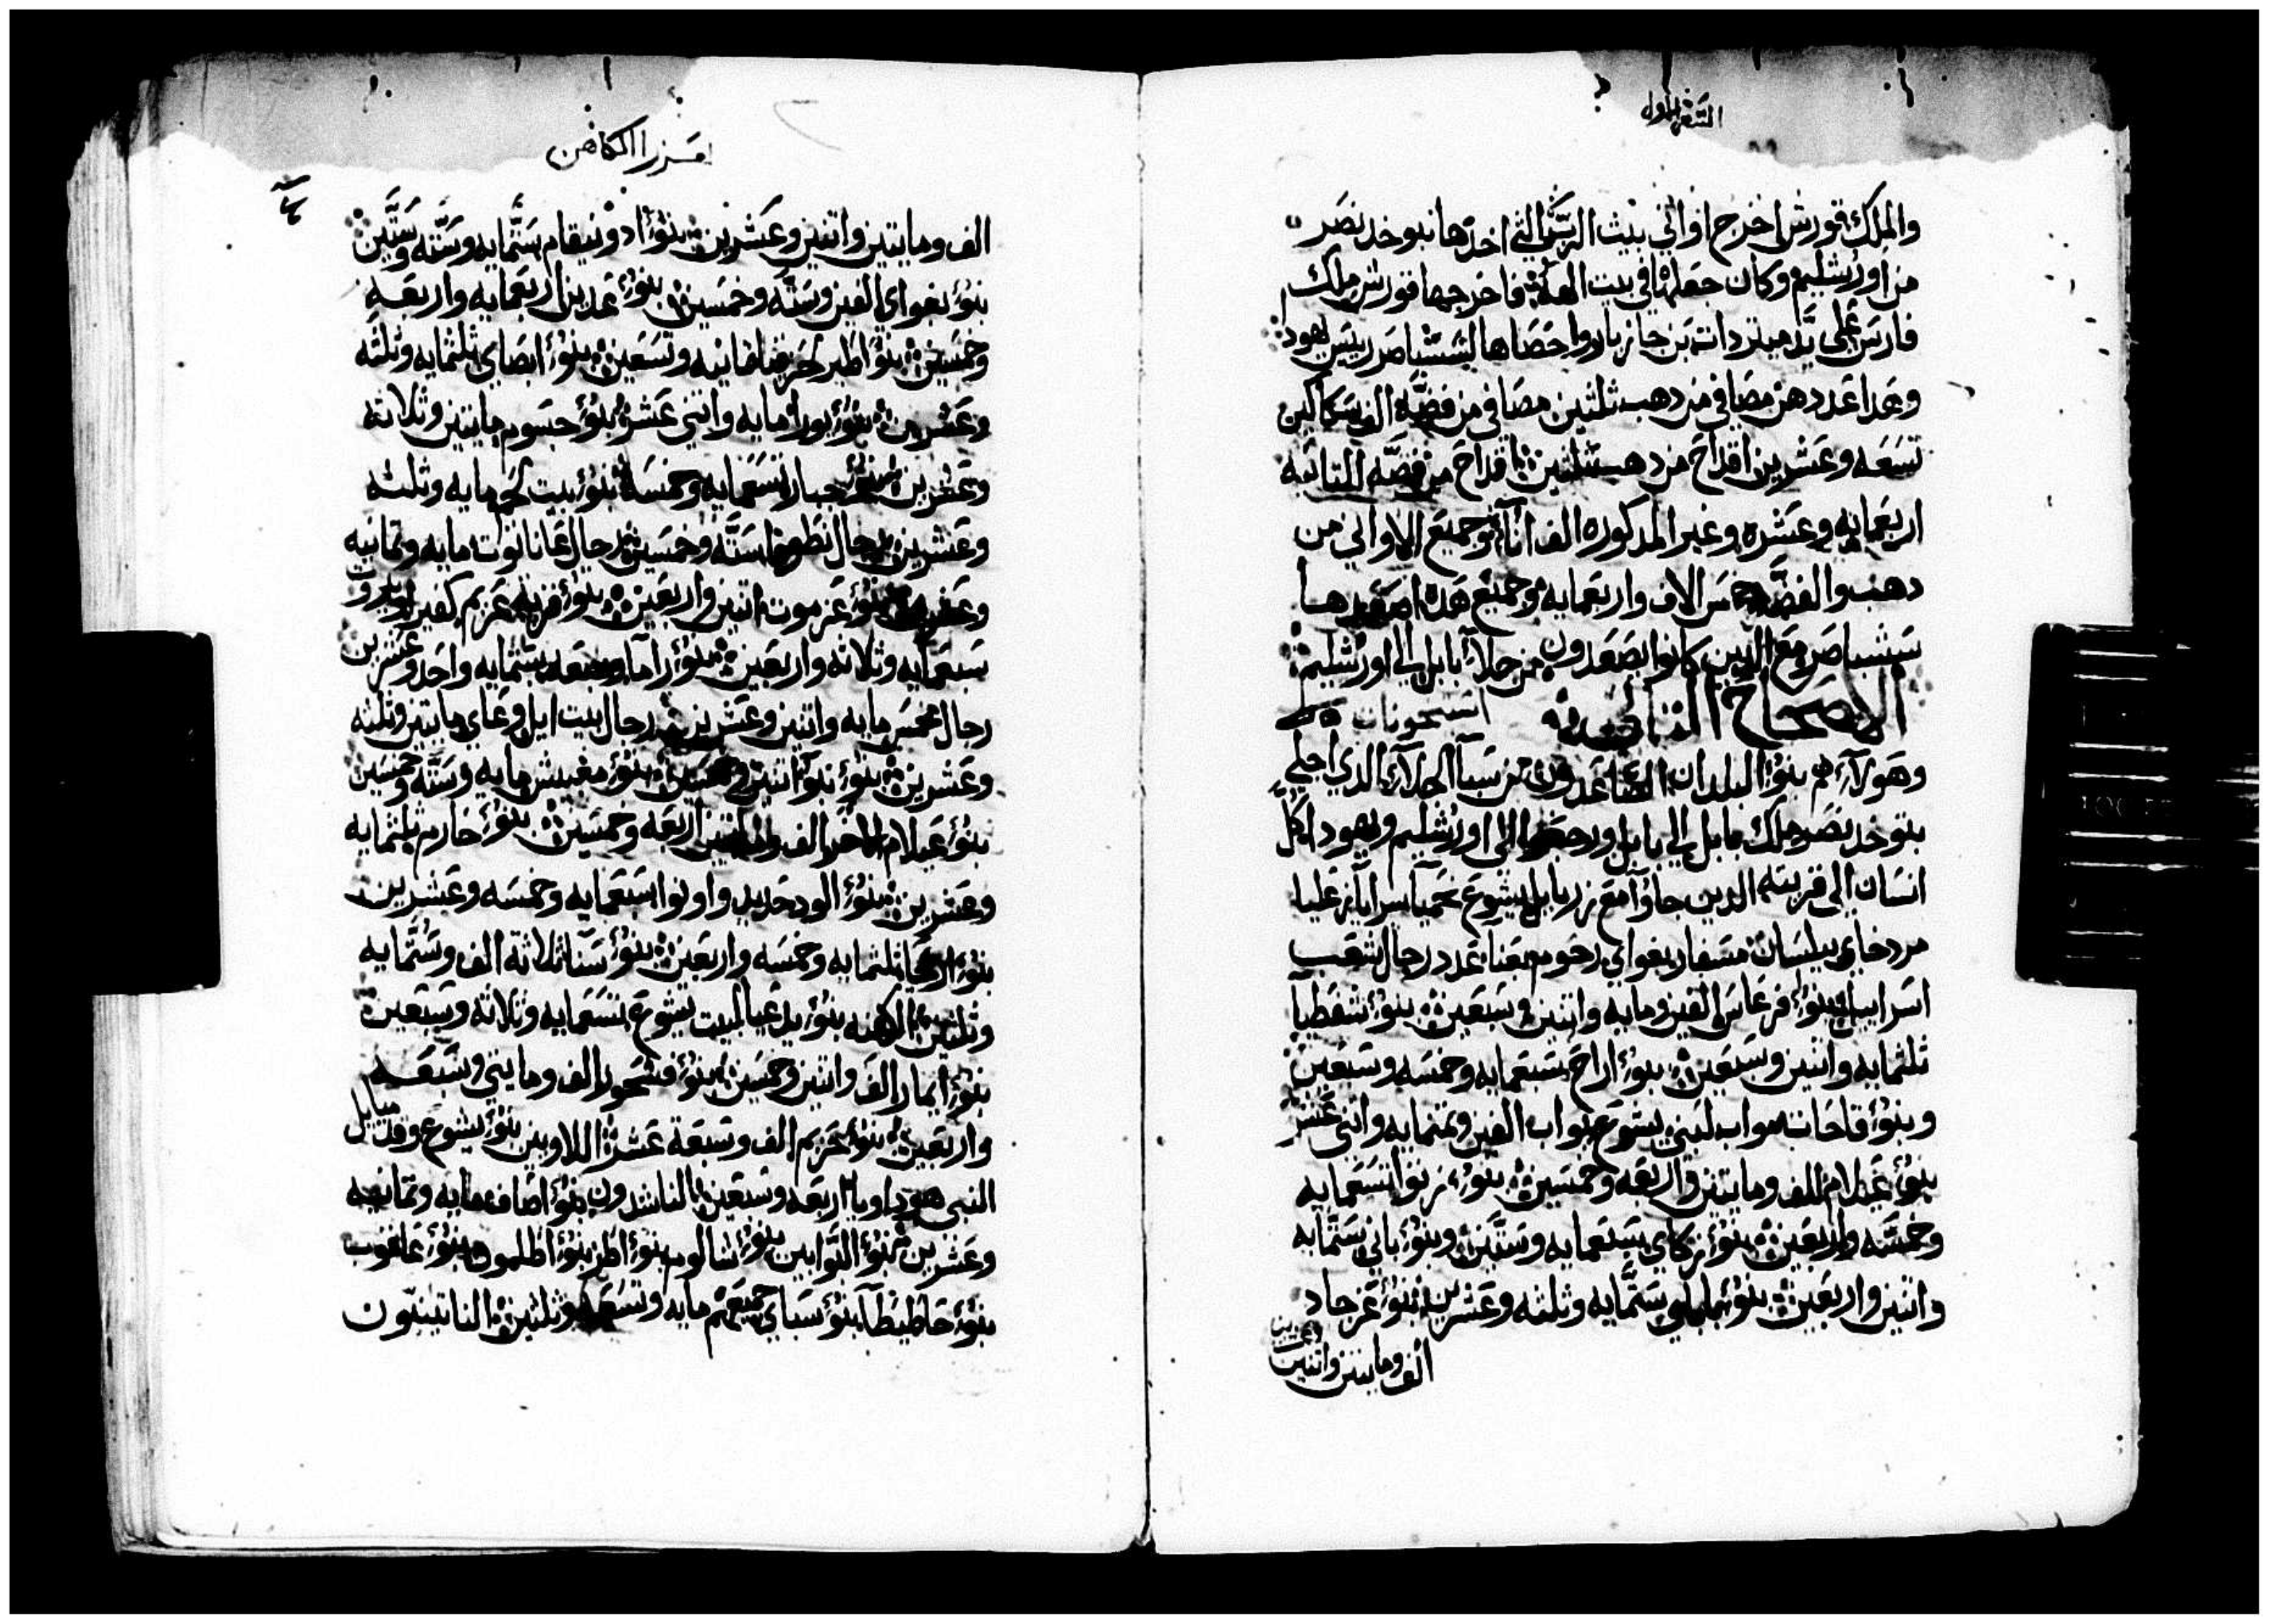 السفر الاول
والملك قورش اخرج اواني بيت الرب التي اخدها نبوخدنصر
من اورشليم وكان جعلها في بيت الهه فاخرجها قورش ملك
فارس علي يد ميتردات بن جازبار واحصاها لشسباصر رييس يهودا
وهدا عددهن مصافي من دهب ثلثين مصافي من فضه الف سكاكين
تسعه وعشرين اقداح من دهب ثلثين اقداح من فضه التانيه
اربعمايه وعشره وغير المدكوره الف انآ وجميع الاواني من
دهب والفضه خمس الاف واربعمايه وجميع هده اصعدها
سشباصر مع الدين كانوا يصعدون من جلاء بابل الي اورشليم
الاصحاح التاني
وهولآء هم بنوء البلدان الصاعدون من سبآ الجلاء الدي اجلي
بنوخدنصر ملك بابل الي بابل ورجعوا الي اورشليم ويهودا كل
انسان الي قريته الدين جاؤا مع زربابل يشوع نحميا سرايا رعليا
مردخاي بيلسان مسفار يغواي رحوم بعنا عدد رجال شعب
اسراييل بنوء فرعاس الفين ومايه واتنين وسبعين بنوء شفطيا
تلتمايه واتنين وسبعين بنوء اراح سبعمايه وخمسه وسبعين
وبنوء فاحات مواب لبني يشوع يواب الفين وتمنمايه واتني عشر
بنوء عيلام الف ومايتين واربعه وخمسين بنوء زتوا تسعمايه
وخمسه واربعين بنوء زكاي سبعمايه وستين وبنوء باني ستمايه
واتنين واربعين بنوء بابلي ستمايه وتلته وعشرين بنوء عزجاد
الف ومايتين واتنين وعشرين
عزرا الكاهن
الف ومايتين واتنين وعشرين بنوء ادونيقام ستمايه وسته وستين
بنوء بغواي الفين وسته وخمسين بنوء عدين اربعمايه واربعه
وخمسين بنوء اطير لحزقيا تمانيه وتسعين بنوء ابصاي تلتمايه وتلته
وعشرين بنوء يورا مايه واتني عشر بنوء حسوم مايتين وثلاته
وعشرين بنوء جبار تسعمايه وخمسه بنوء بيت لحم مايه وثلثه
وعشرين رجال نطوفا سته وخمسين رجال عاناتوت مايه وتمانيه
وعشرين بنوء عزموت اتنين واربعين بنوء قريه عريم كفيرا وبيروت
سبعمايه وثلاته واربعين بنوء راما وجبعه ستمايه واحد وعشرين
رجال مخمس مايه واتنين وعشرين رجال بيت ايل وعاي مايتين وتلته
وعشرين بنوء نبو اتنين وخمسين بنوء مغبيش مايه وسته وخمسين
بنوء عيلام الاخر الف ومايتين اربعه وخمسين بنوء حاريم تلتمايه
وعشرين بنوء الود حديد واونوا سبعمايه وخمسه وعشرين
بنوء اريحا تلتمايه وخمسه واربعين بنوء سنا تلاتة الف وستمايه
وثلثين الكهنه بنوء يدعيا لبيت يشوع تسعمايه وثلاته وسبعين
بنوء ايمار الف واتنين وخمسين بنوء فشحور الف ومايتي وسبعه
واربعين بنوء حريم الف وسبعة عشر اللاويين بنوء يشوع وقدميايل
لبني هودا ويا اربعه وسبعين الناشدون بنوء اصاف مايه وتمانيه
وعشرين بنوء التوابين بنوء شالوم بنوء اطر بنوء اطلمون بنوء عاقوب
بنوء حاطيطآ بنوء سباي جميعهم مايه وتسعه وثلثين الناتينيون